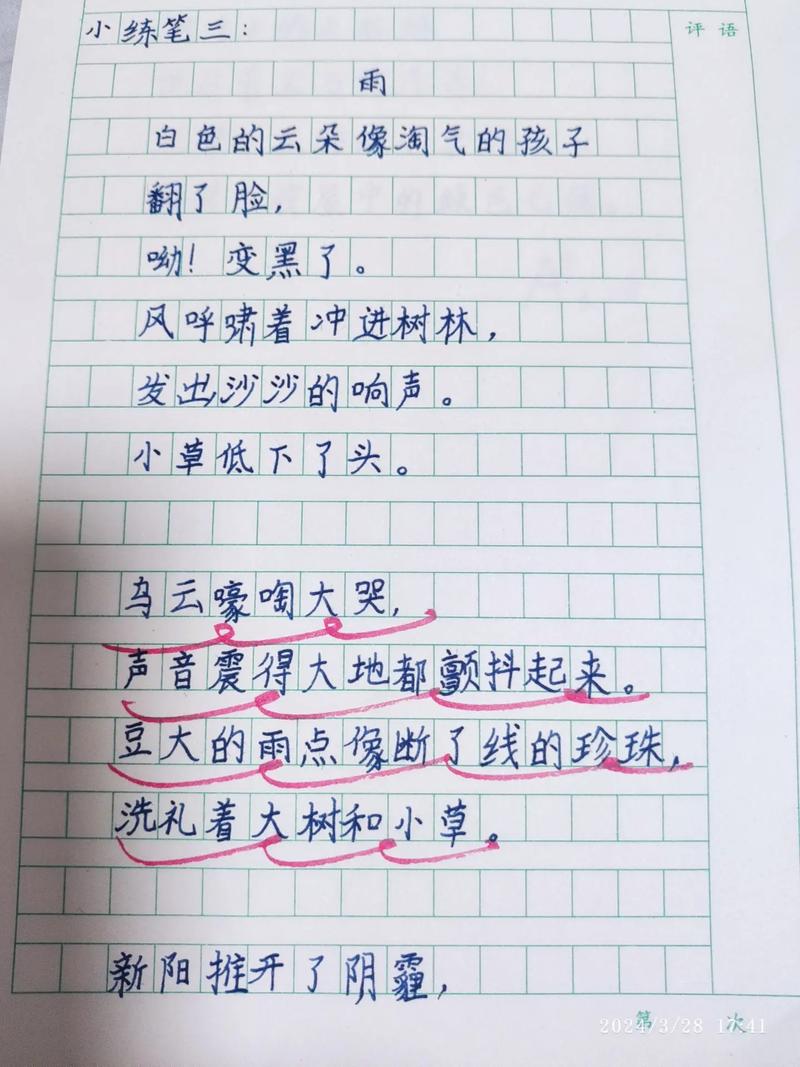 小练笔三：
评语
雨
白色的云朵像淘气的孩子
翻了脸，
呦！变黑了。
风呼啸着冲进树林，
发出沙沙的响声。
小草低下了头。
乌云嚎啕大哭，
声音震得大地都颤抖起来。
豆大的雨点像断了线的珍珠，
洗礼着大树和小草。
新阳推开了阴霾，
第 次
2024/3/28 17:41